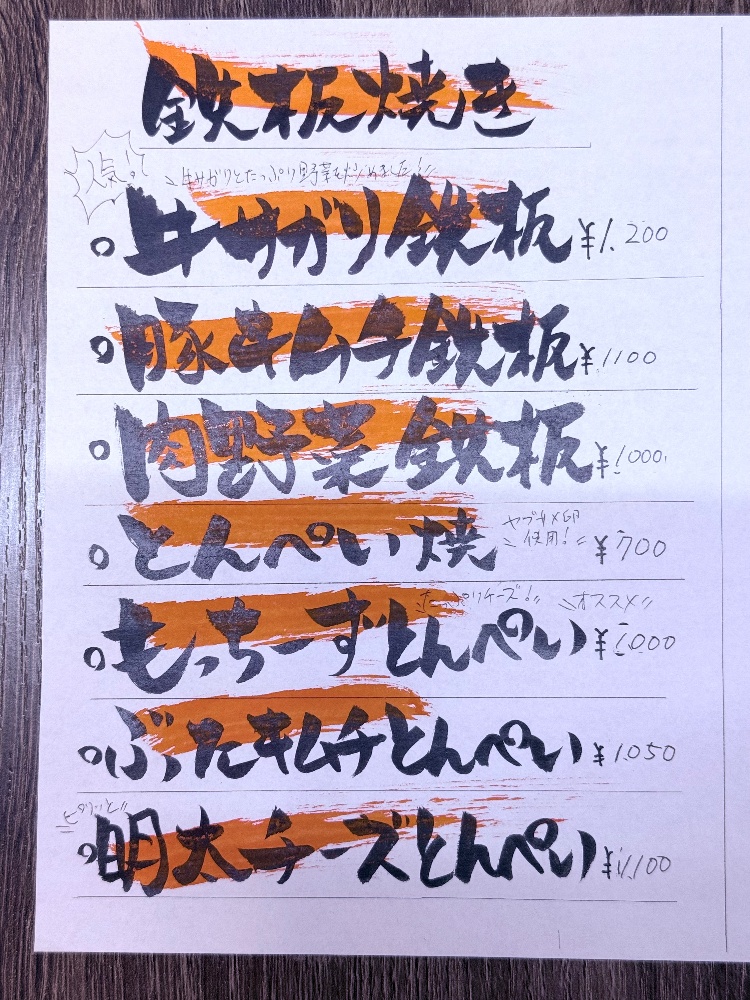 鉄板焼き
人気!!
\\牛サガリとたっぷり野菜を炒めました!//
○牛サガリ鉄板 ¥1,200
○豚キムチ鉄板 ¥1100
○肉野菜鉄板 ¥1,000
○とんぺい焼 ¥700
ヤブサメ卵
\\使用!//
\\たっぷりチーズ!// \\オススメ//
○もっちーずとんぺい ¥1,000
○ぶったキムチとんぺい ¥1,050
\\ピリッと//
○明太チーズとんぺい ¥1,100